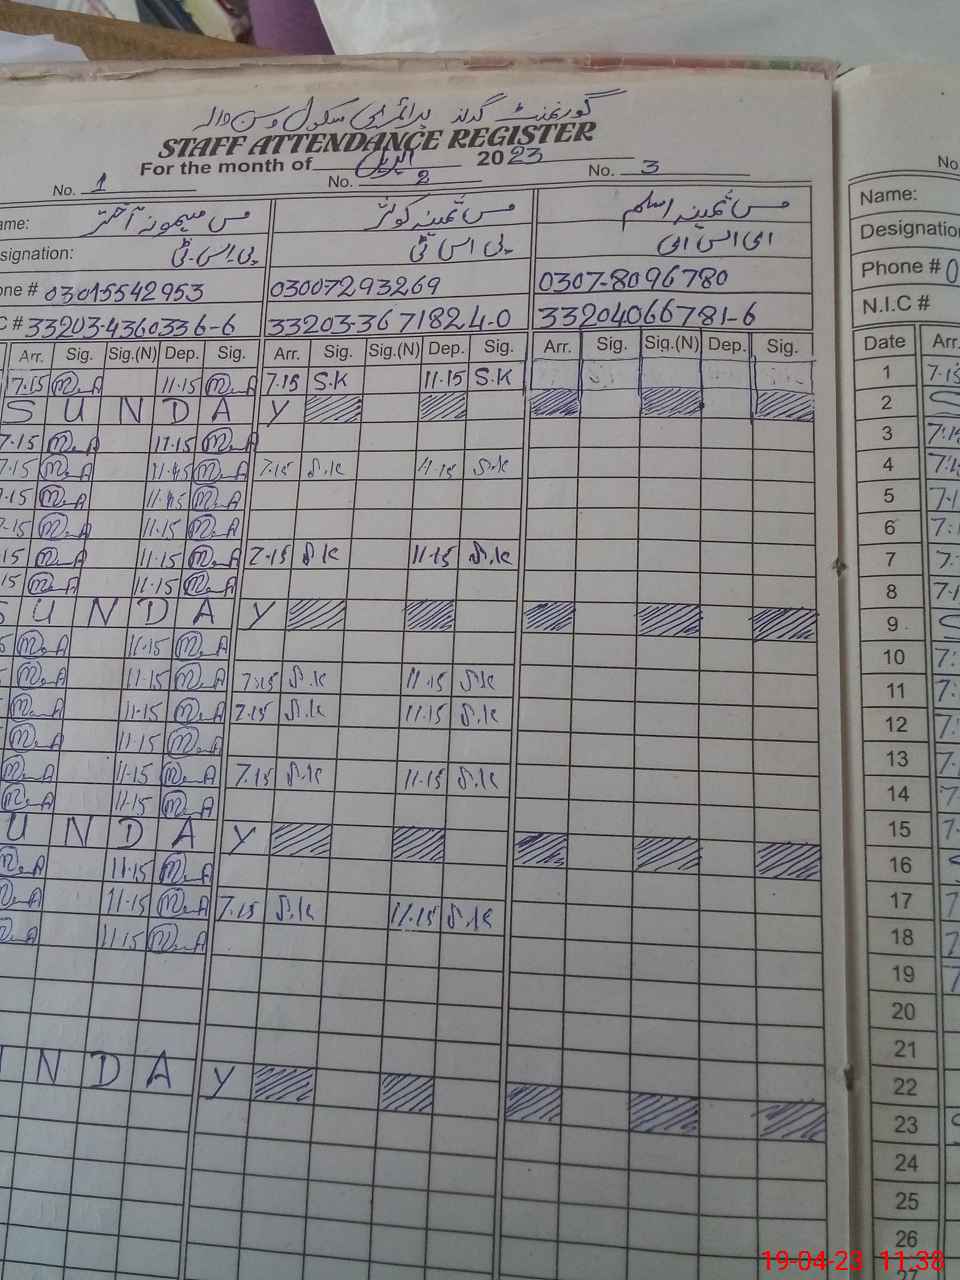 گورنمنٹ گرلز پرائمری سکول
STAFF ATTENDANCE REGISTER
For the month of اپریل 2023
No. 1 No. 2 No. 3 No
ame: مس میمونہ اختر مس ثمینہ کوثر مس ثمینہ اسلم Name:
signation: پی ایس ٹی پی ایس ٹی ای ایس ای Designatio
one # 03015542953 03007293269 0307-8096780 Phone # 0
C # 33203-4360336-6 33203-3671824-0 33204066781-6 N.I.C #
Arr. Sig. Sig.(N) Dep. Sig. Arr. Sig. Sig.(N) Dep. Sig. Arr. Sig. Sig.(N) Dep. Sig. Date Arr.
7.15 M.A 11.15 M.A 7.15 S.K 11.15 S.K 1 7.15
S U N D A Y 2 S
7.15 M.A 11.15 M.A 3 7.15
7.15 M.A 11.45 M.A 7.15 S.K 11.15 S.K 4 7.1
.15 M.A 11.45 M.A 5 7.1
7.15 M.A 11.15 M.A 6 7.
15 M.A 11.15 M.A 7.15 S.K 11.15 S.K 7 7.
15 M.A 11.15 M.A 8 7.1
S U N D A Y 9 S
5 M.A 11.15 M.A 10 7.
5 M.A 11.15 M.A 7.15 S.K 11.15 S.K 11 7.
5 M.A 11.15 M.A 7.15 S.K 11.15 S.K 12 7.
M.A 11.15 M.A 13 7.
M.A 11.15 M.A 7.15 S.K 11.15 S.K 14 7
M.A 11.15 M.A 15 7.
U N D A Y 16 S
M.A 11.15 M.A 17 7
M.A 11.15 M.A 7.15 S.K 11.15 S.K 18 7
M.A 11.15 M.A 19 7
20
21
22
N D A Y 23 S
24
25
26
27
19-04-23 11:38